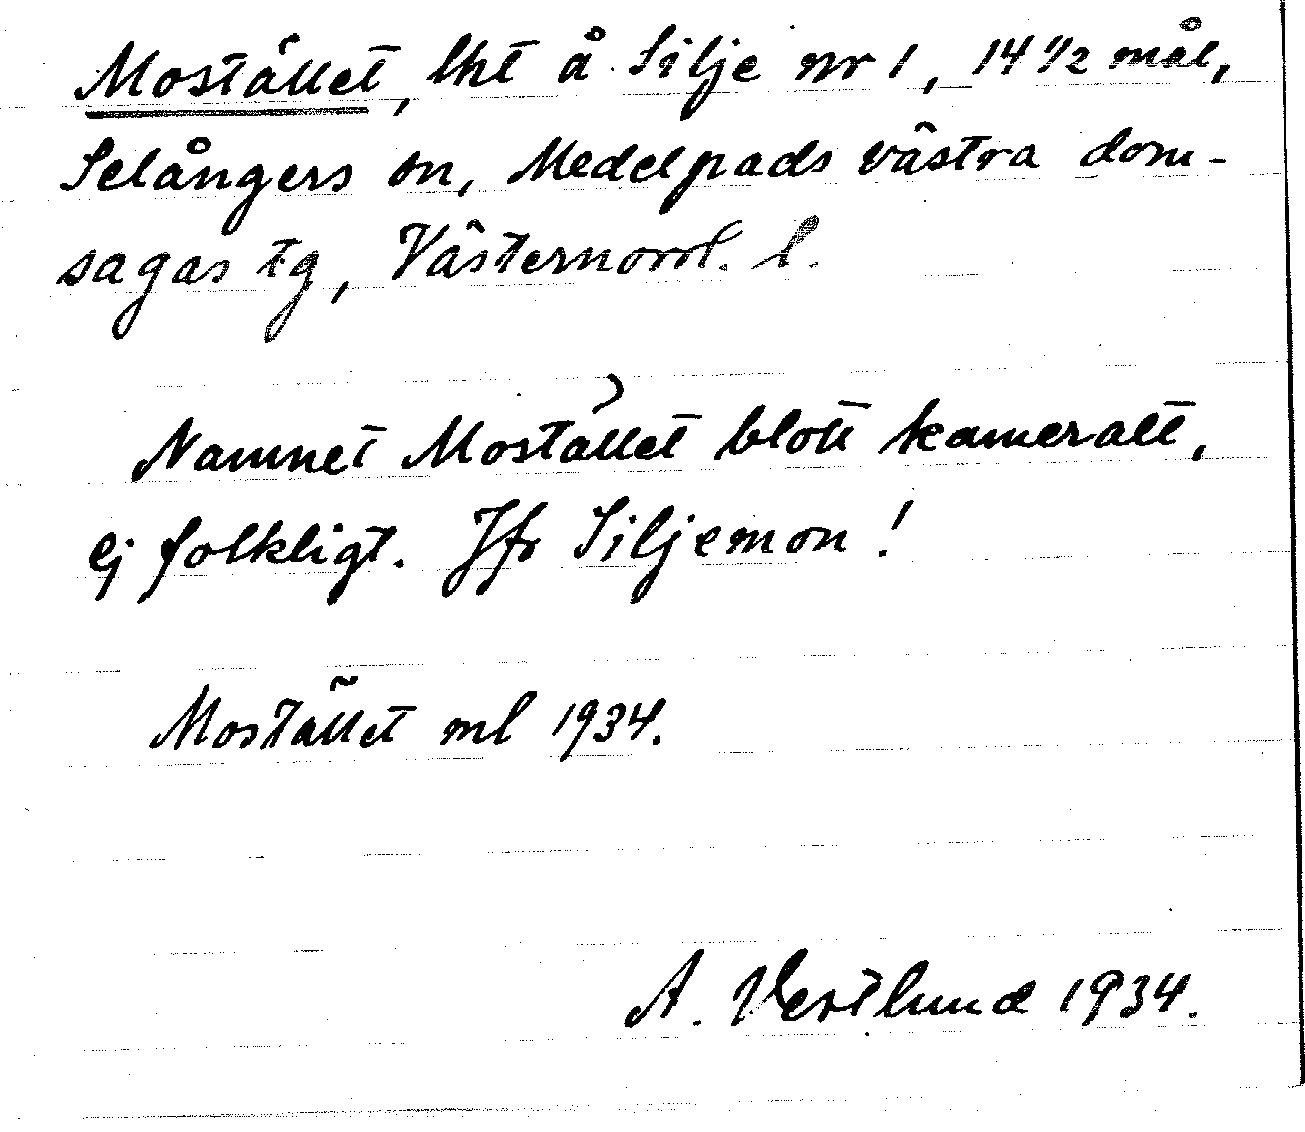 Mostället, lht å Silje nr 1, 14 1/2 mål,
Selångers sn, Medelpads västra dom-
sagas tg, Västernorrl. l.
Namnet Mostället blott kameralt,
ej folkligt. Jfr Siljemon!
Mostället ml 1934.
A. Vestlund 1934.